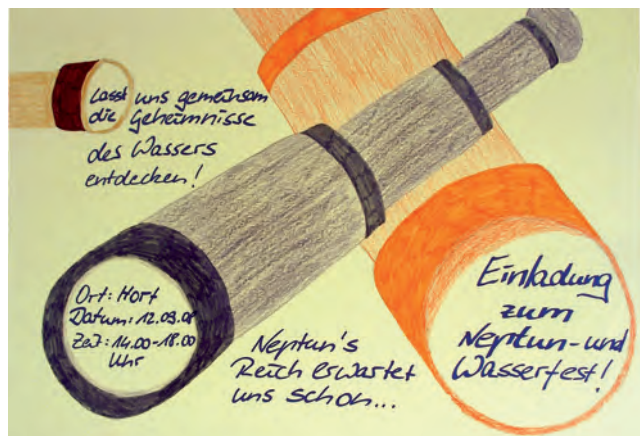 Lasst uns gemeinsam
die Geheimnisse
des Wassers
entdecken!
Ort: Hort
Datum: 12.09.08
Zeit: 14.00-18.00
Uhr
Neptun's
Reich erwartet
uns schon...
Einladung
zum
Neptun- und
Wasserfest!